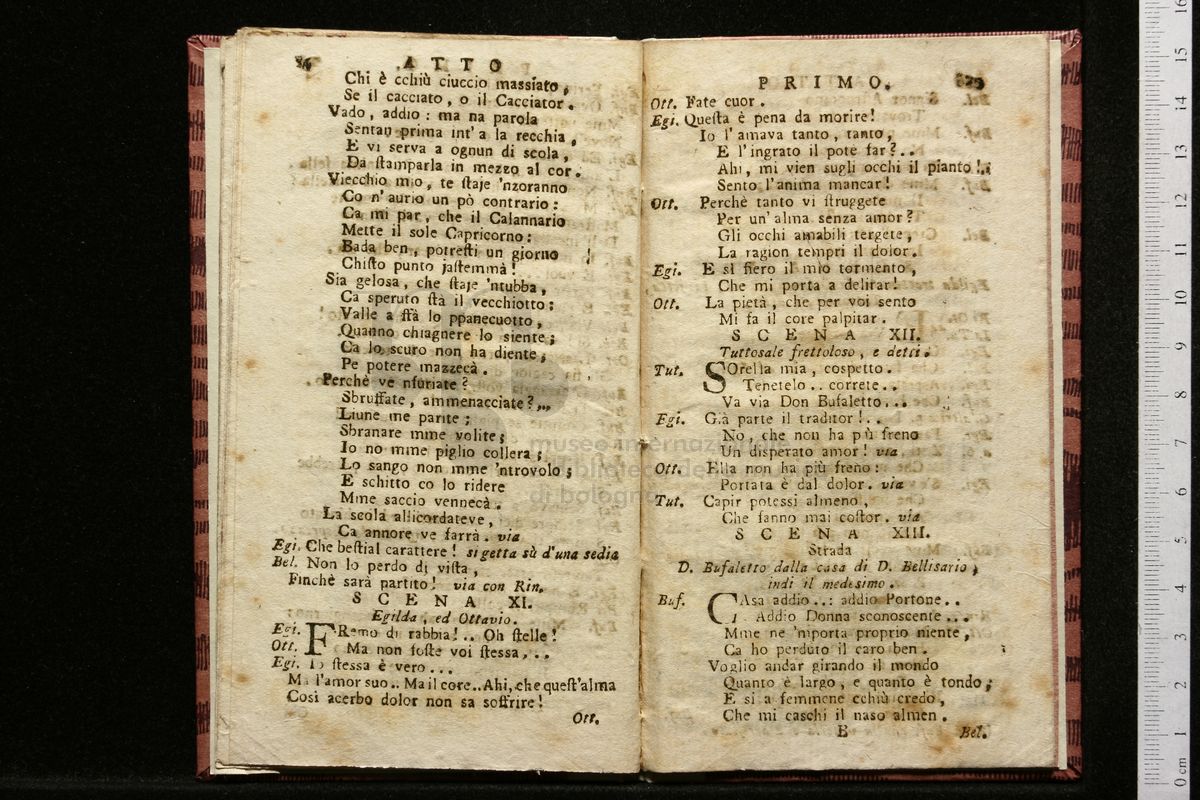 ATTO
Chi è cchiù ciuccio massiato,
Se il cacciato, o il Cacciator.
Vado, addio: ma na parola
Sentan prima int' a la recchia,
E vi serva a ognun di scola,
Da ſtamparla in mezzo al cor.
Viecchio mio, te ſtaje 'nzoranno
Co n'aurio un pò contrario:
Ca mi par, che il Calannario
Mette il sole Capricorno:
Bada ben, potreſti un giorno
Chiſto punto jaſtemmà!
Sia gelosa, che ſtaje 'ntubba,
Ca speruto ſtà il vecchiotto:
Valle a ffà lo ppanecuotto,
Quanno chiagnere lo siente;
Ca lo scuro non ha diente;
Pe potere mazzecà.
Perchè ve nfuriate?
Sbruffate, ammenacciate?...
Liune me parite;
Sbranare mme volite;
Io no mme piglio collera;
Lo sango non mme 'ntrovolo;
E schitto co lo ridere
Mme saccio vennecà.
La scola allicordateve,
Ca annore ve farrà. via
Egi. Che beſtial carattere! si getta sù d'una sedia
Bel. Non lo perdo di viſta,
Finchè sarà partito! via con Rin.
SCENA XI.
Egilda, ed Ottavio.
Egi. FRemo di rabbia!.. Oh ſtelle!
Ott. Ma non foſte voi ſtessa,...
Egi. Io ſtessa è vero...
Ma l'amor suo.. Ma il core.. Ahi, che queſt'alma
Così acerbo dolor non sa soffrire!
Ott.
PRIMO.
Ott. Fate cuor.
Egi. Queſta è pena da morire!
Io l'amava tanto, tanto,
E l'ingrato il pote far?..
Ahi, mi vien sugli occhi il pianto!..
Sento l'anima mancar!
Ott. Perchè tanto vi ſtruggete
Per un'alma senza amor?
Gli occhi amabili tergete,
La ragion tempri il dolor.
Egi. E sì fiero il mio tormento,
Che mi porta a delirar!
Ott. La pietà, che per voi sento
Mi fa il core palpitar.
SCENA XII.
Tuttosale frettoloso, e detti.
Tut. SOrella mia, cospetto.
Tenetelo.. correte..
Va via Don Bufaletto...
Egi. Già parte il traditor!..
No, che non ha più freno
Un disperato amor! via
Ott. Ella non ha più freno:
Portata è dal dolor. via
Tut. Capir potessi almeno,
Che fanno mai coſtor. via
SCENA XIII.
Strada
D. Bufaletto dalla casa di D. Bellisario,
indi il medesimo.
Buf. CAsa addio..: addio Portone..
Addio Donna sconoscente...
Mme ne 'mporta proprio niente,
Ca ho perduto il caro ben.
Voglio andar girando il mondo
Quanto è largo, e quanto è tondo;
E si a femmene cchiù credo,
Che mi caschi il naso almen.
E
Bel.
museo internazionale
biblioteca della
di bologna
0 cm 1 2 3 4 5 6 7 8 9 10 11 12 13 14 15 16